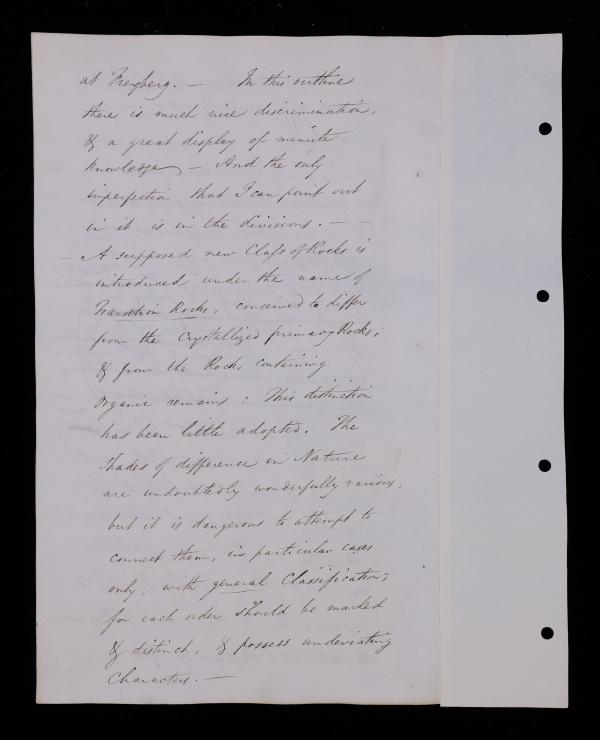 at Freyberg. — In this outline
there is much nice discrimination,
& a great display of minute
knowledge — And the only
imperfection that I can point out
in it, is in the divisions. — —
— A supposed new Class of Rocks is
introduced under the name of
Transition Rocks, conceived to differ
from the Crystallized primary Rocks;
& from the Rocks containing
organic remains: This distinction
has been little adopted. The
Shades of difference in Nature
are undoubtedly wonderfully various,
but it is dangerous to attempt to
connect them, in particular cases
only, with general Classification;
for each order should be marked
& distinct, & possess undeviating
Characters. —